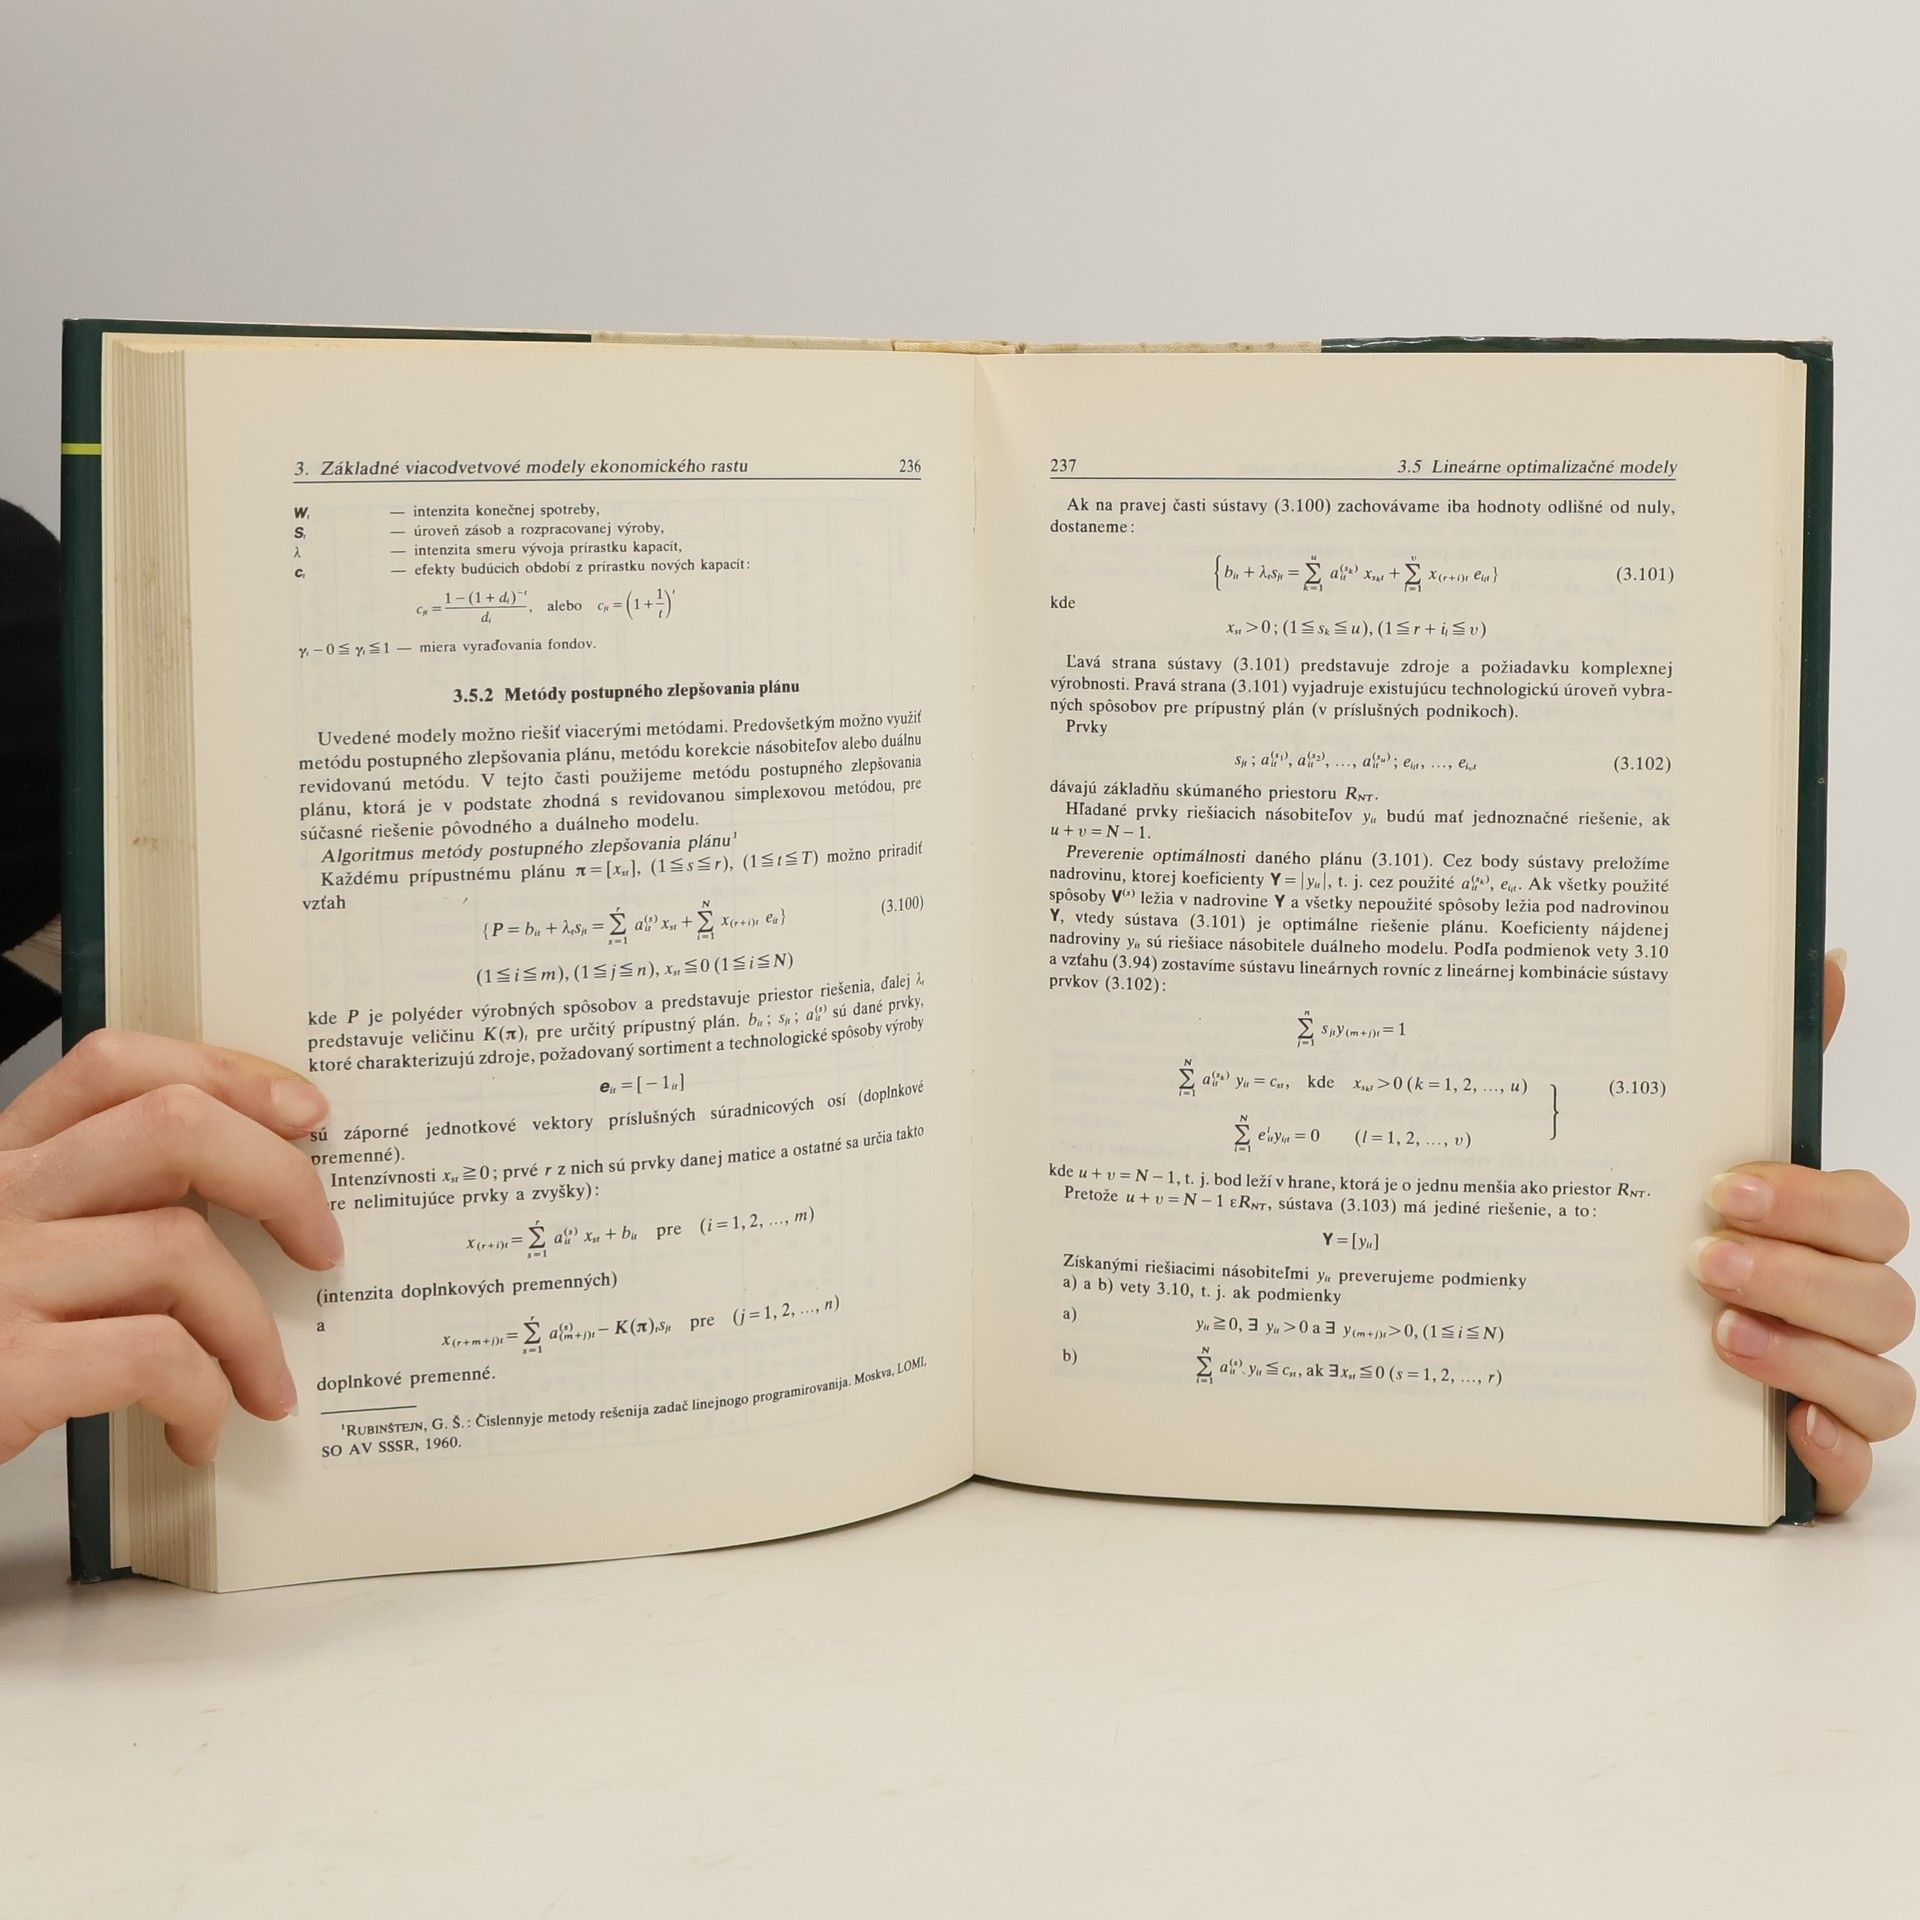 3. Základné viacodvetvové modely ekonomického rastu 236
W_t — intenzita konečnej spotreby,
S_t — úroveň zásob a rozpracovanej výroby,
λ — intenzita smeru vývoja prírastku kapacít,
c_t — efekty budúcich období z prírastku nových kapacít:
c_{jt} = \frac{1-(1+d_i)^{-t}}{d_i}, alebo c_{jt} = (1+\frac{1}{t})^t
γ_t – 0 ≦ γ_t ≦ 1 — miera vyraďovania fondov.
3.5.2 Metódy postupného zlepšovania plánu
Uvedené modely možno riešiť viacerými metódami. Predovšetkým možno využiť
metódu postupného zlepšovania plánu, metódu korekcie násobiteľov alebo duálnu
revidovanú metódu. V tejto časti použijeme metódu postupného zlepšovania
plánu, ktorá je v podstate zhodná s revidovanou simplexovou metódou, pre
súčasné riešenie pôvodného a duálneho modelu.
Algoritmus metódy postupného zlepšovania plánu¹
Každému prípustnému plánu π = [x_{st}], (1 ≦ s ≦ r), (1 ≦ t ≦ T) možno priradiť
vzťah
{P = b_{it} + λ_t s_{jt} = \sum_{s=1}^{r} a_{it}^{(s)} x_{st} + \sum_{i=1}^{N} x_{(r+i)t} e_{it}} (3.100)
(1 ≦ i ≦ m), (1 ≦ j ≦ n), x_{st} ≦ 0 (1 ≦ i ≦ N)
kde P je polyéder výrobných spôsobov a predstavuje priestor riešenia, ďalej λ_t
predstavuje veličinu K(π)_t pre určitý prípustný plán. b_{it}; s_{jt}; a_{it}^{(s)} sú dané prvky,
ktoré charakterizujú zdroje, požadovaný sortiment a technologické spôsoby výroby
e_{it} = [– 1_{it}]
sú záporné jednotkové vektory príslušných súradnicových osí (doplnkové
premenné).
Intenzívnosti x_{st} ≧ 0; prvé r z nich sú prvky danej matice a ostatné sa určia takto
re nelimitujúce prvky a zvyšky):
x_{(r+i)t} = \sum_{s=1}^{r} a_{it}^{(s)} x_{st} + b_{it} pre (i = 1, 2, ..., m)
(intenzita doplnkových premenných)
a
x_{(r+m+j)t} = \sum_{s=1}^{r} a_{(m+j)t}^{(s)} – K(π)_t s_{jt} pre (j = 1, 2, ..., n)
doplnkové premenné.
¹RUBINŠTEJN, G. Š.: Čislennyje metody rešenija zadač linejnogo programirovanija. Moskva, LOMI,
SO AV SSSR, 1960.
237 3.5 Lineárne optimalizačné modely
Ak na pravej časti sústavy (3.100) zachovávame iba hodnoty odlišné od nuly,
dostaneme:
{b_{it} + λ_t s_{jt} = \sum_{k=1}^{u} a_{it}^{(s_k)} x_{s_k t} + \sum_{i=1}^{v} x_{(r+i)t} e_{i_l t}} (3.101)
kde
x_{st} > 0; (1 ≦ s_k ≦ u), (1 ≦ r + i_l ≦ v)
Ľavá strana sústavy (3.101) predstavuje zdroje a požiadavku komplexnej
výrobnosti. Pravá strana (3.101) vyjadruje existujúcu technologickú úroveň vybra-
ných spôsobov pre prípustný plán (v príslušných podnikoch).
Prvky
s_{jt}; a_{it}^{(s_1)}, a_{it}^{(s_2)}, ..., a_{it}^{(s_u)}; e_{i_1 t}, ..., e_{i_v t} (3.102)
dávajú základňu skúmaného priestoru R_{NT}.
Hľadané prvky riešiacich násobiteľov y_{it} budú mať jednoznačné riešenie, ak
u + v = N – 1.
Preverenie optimálnosti daného plánu (3.101). Cez body sústavy preložíme
nadrovinu, ktorej koeficienty Y = |y_{it}|, t. j. cez použité a_{it}^{(s_k)}, e_{i_l t}. Ak všetky použité
spôsoby V^{(s)} ležia v nadrovine Y a všetky nepoužité spôsoby ležia pod nadrovinou
Y, vtedy sústava (3.101) je optimálne riešenie plánu. Koeficienty nájdenej
nadroviny y_{it} sú riešiace násobitele duálneho modelu. Podľa podmienok vety 3.10
a vzťahu (3.94) zostavíme sústavu lineárnych rovníc z lineárnej kombinácie sústavy
prvkov (3.102):
\sum_{j=1}^{n} s_{jt} y_{(m+j)t} = 1
\sum_{i=1}^{N} a_{it}^{(s_k)} y_{it} = c_{st}, kde x_{s_k t} > 0 (k = 1, 2, ..., u) } (3.103)
\sum_{i=1}^{N} e_{it}^{l} y_{i_l t} = 0 (l = 1, 2, ..., v)
kde u + v = N – 1, t. j. bod leží v hrane, ktorá je o jednu menšia ako priestor R_{NT}.
Pretože u + v = N – 1 εR_{NT}, sústava (3.103) má jediné riešenie, a to:
Y = [y_{it}]
Získanými riešiacimi násobiteľmi y_{it} preverujeme podmienky
a) a b) vety 3.10, t. j. ak podmienky
a) y_{it} ≧ 0, ∃ y_{it} > 0 a ∃ y_{(m+j)t} > 0, (1 ≦ i ≦ N)
b) \sum_{i=1}^{N} a_{it}^{(s)} y_{it} ≦ c_{st}, ak ∃ x_{st} ≦ 0 (s = 1, 2, ..., r)